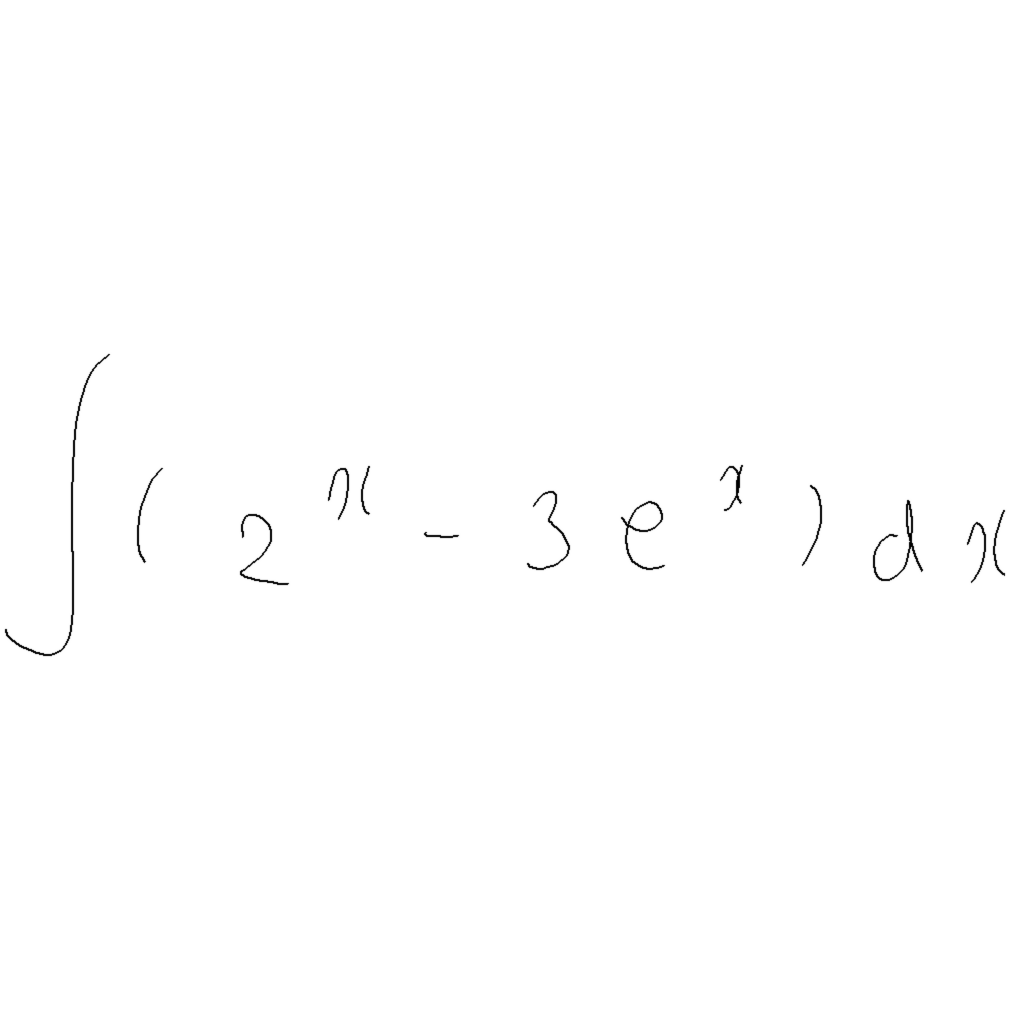 ∫ ( 2^x - 3 e^x ) d x